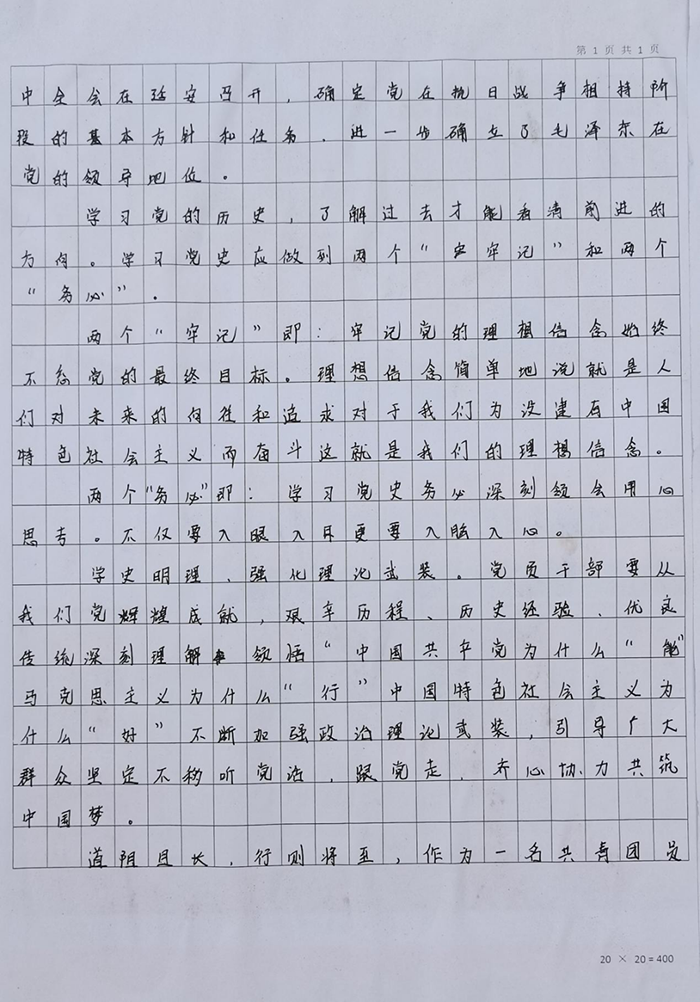 第 1 页 共 1 页
中全会在延安召开，确定党在抗日战争相持阶
段的基本方针和任务．进一步确立了毛泽东在
党的领导地位。
学习党的历史，了解过去才能看清前进的
方向。学习党史应做到两个“牢记”和两个
“务必”．
两个“牢记”即：牢记党的理想信念始终
不忘党的最终目标。理想信念简单地说就是人
们对未来的向往和追求对于我们为没建有中国
特色社会主义而奋斗这就是我们的理想信念。
两个“务必”即：学习党史务必深刻领会用心
思考。不仅要入眼入耳更要入脑入心。
学史明理、强化理论武装。党员干部要从
我们党辉煌成就，艰辛历程、历史经验、优良
传统深刻理解领悟“中国共产党为什么“能”
马克思主义为什么“行”中国特色社会主义为
什么“好”不断加强政治理论武装，引导广大
群众坚定不移听党话．跟党走．齐心协力共筑
中国梦。
道阻且长，行则将至，作为一名共青团员
20 × 20 = 400